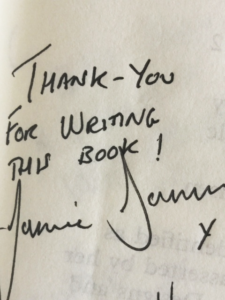 THANK-YOU
FOR WRITING
THIS BOOK!
Jamie
x